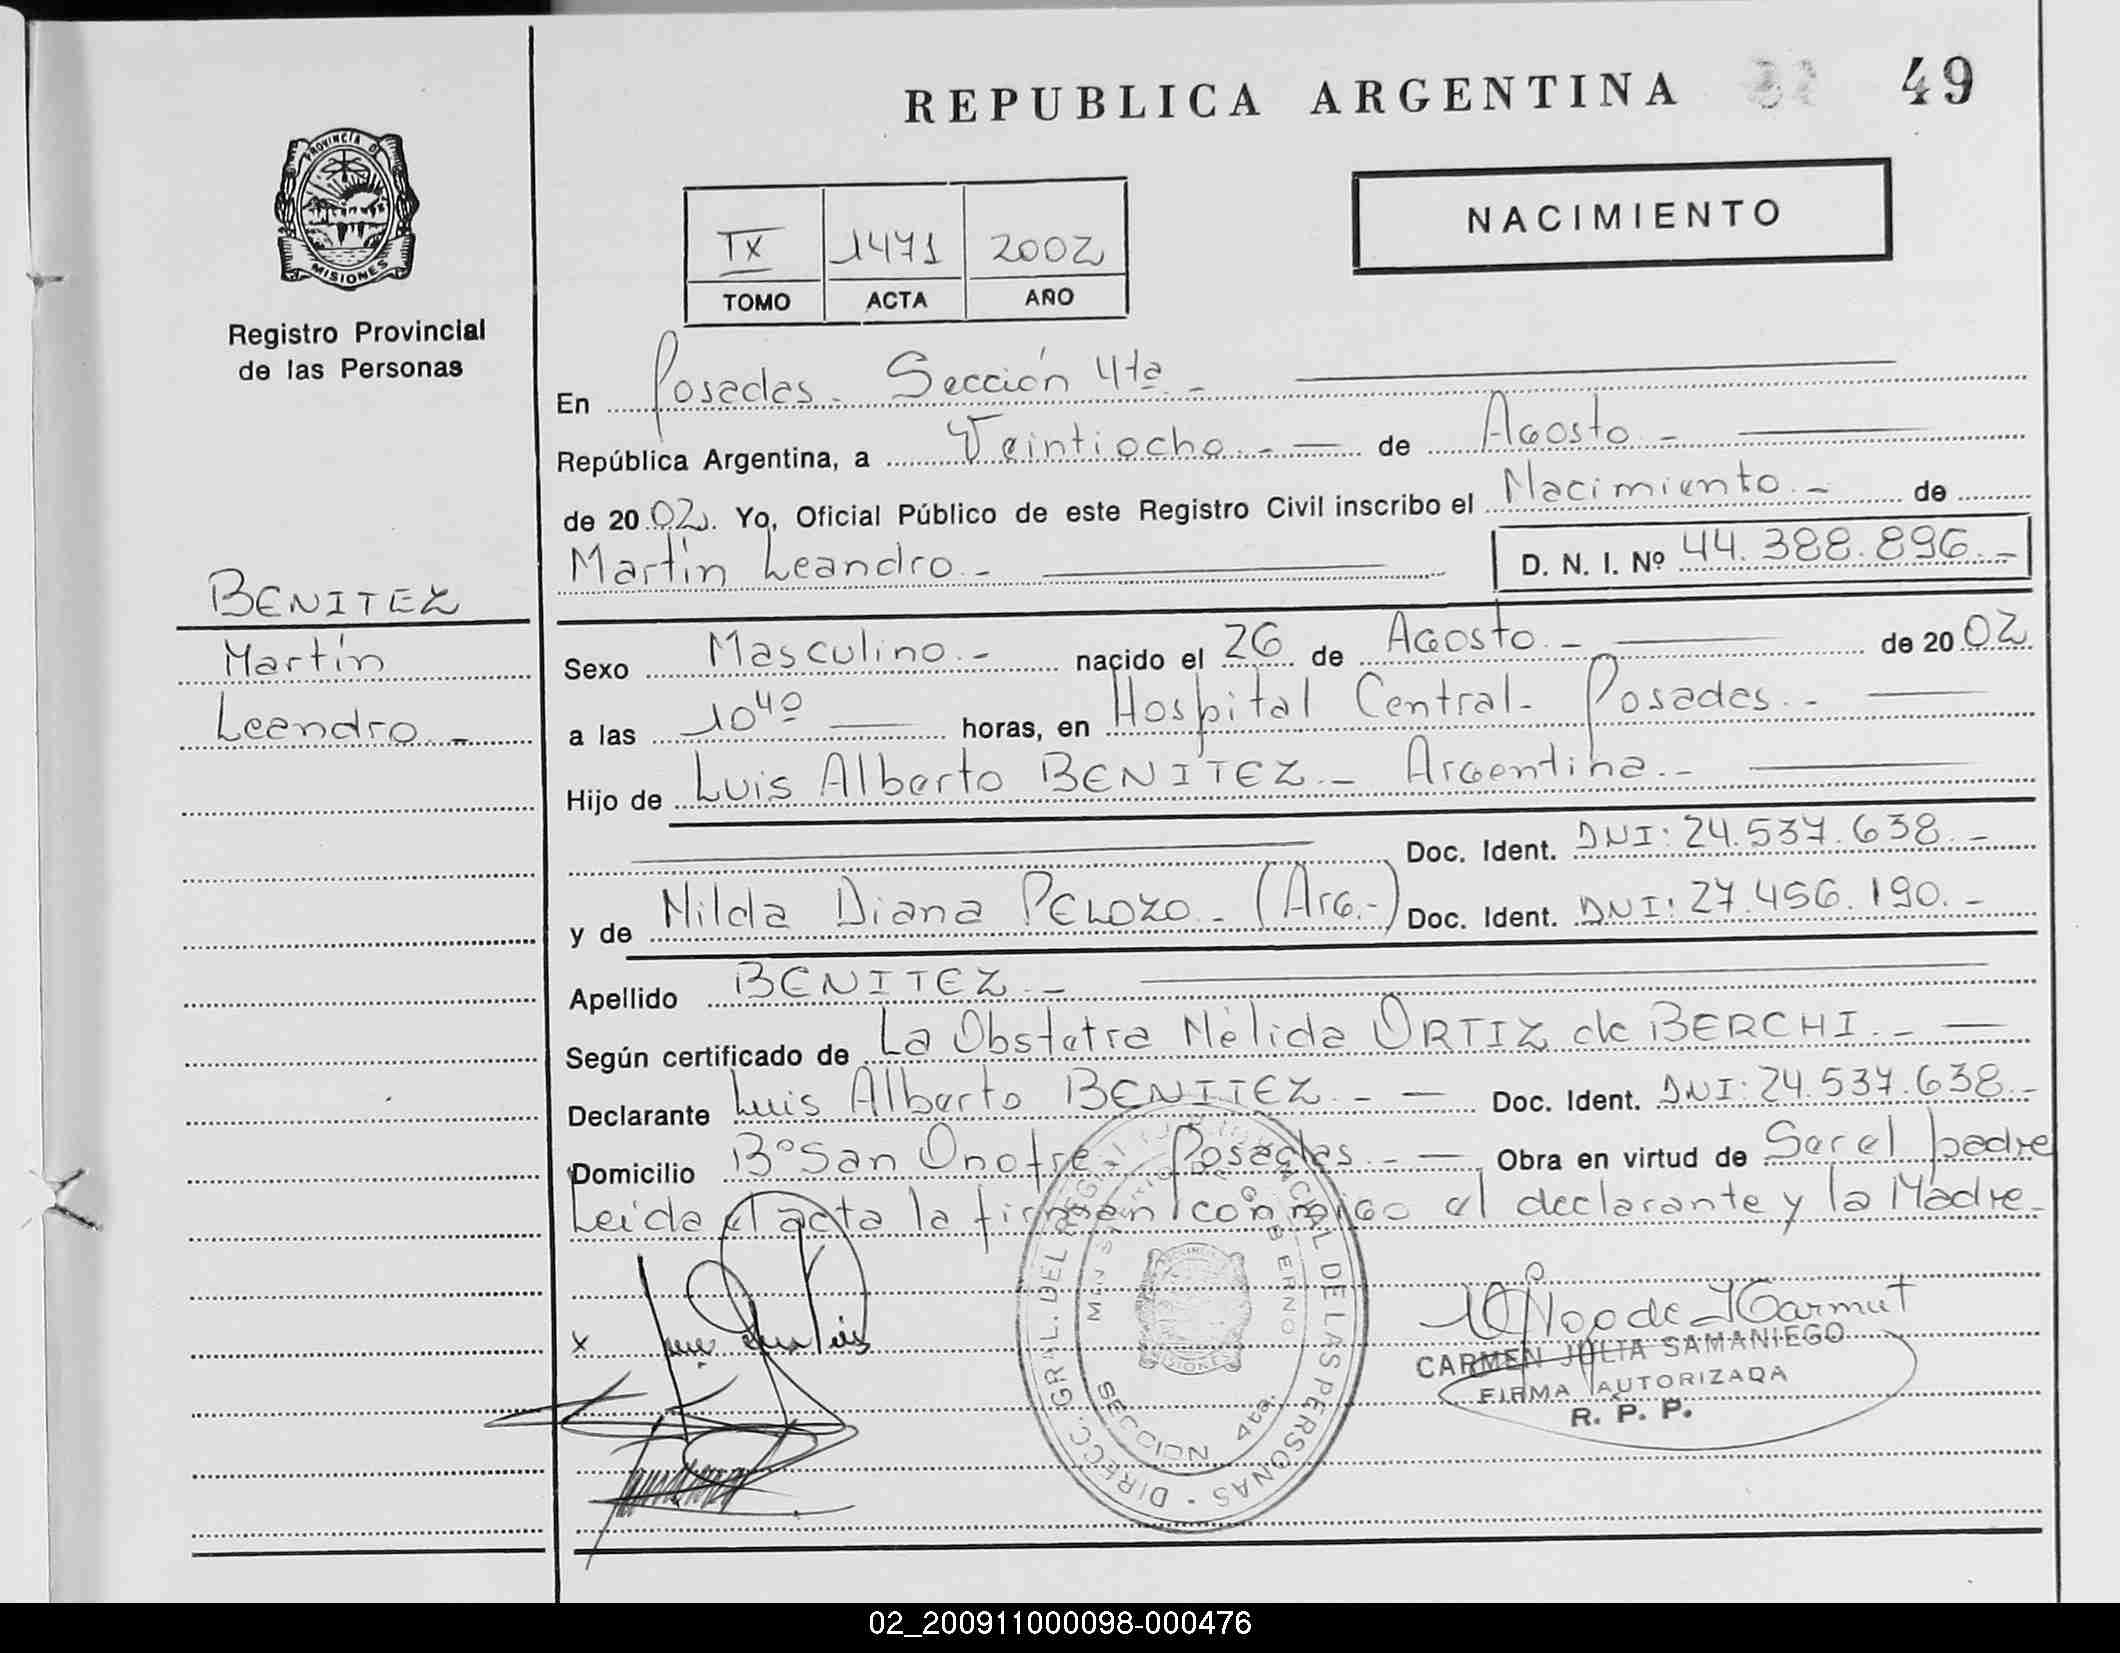 REPUBLICA ARGENTINA 49
PROVINCIA D
MISIONES
Registro Provincial
de las Personas
IX 1471 2002
TOMO ACTA AÑO
NACIMIENTO
En Posadas. Sección 4ta -
República Argentina, a Veintiocho. - de Agosto. -
de 2002. Yo, Oficial Público de este Registro Civil inscribo el Nacimiento. - de
Martín Leandro. - D. N. I. Nº 44.388.896. -
BENITEZ
Martín
Leandro. -
Sexo Masculino. - nacido el 26 de Agosto. - de 2002
a las 10⁴⁰ horas, en Hospital Central - Posadas. -
Hijo de Luis Alberto BENITEZ. - Argentina. -
Doc. Ident. DNI: 24.537.638. -
y de Nilda Diana PELOZO - (Arg.-) Doc. Ident. DNI: 27.456.190. -
Apellido BENITEZ. -
Según certificado de La Obstetra Nélida ORTIZ de BERCHI. -
Declarante Luis Alberto BENITEZ. - Doc. Ident. DNI: 24.537.638. -
Domicilio Bº San Onofre - Posadas. - Obra en virtud de Ser el padre
Leida el acta la firman conmigo el declarante y la Madre. -
x
DIRECC. GRAL. DEL REGISTRO PROVINCIAL DE LAS PERSONAS
MINISTERIO DE GOBIERNO
MISIONES
SECCION 4ta.
CARMEN JULIA SAMANIEGO
FIRMA AUTORIZADA
R. P. P.
02_200911000098-000476